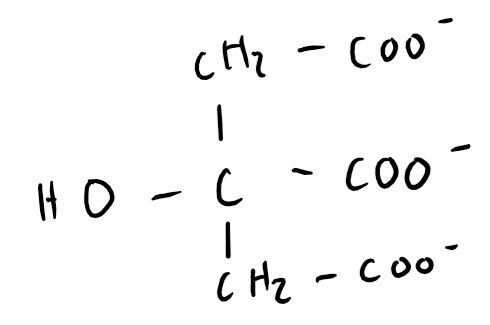 CH₂ - COO⁻
|
HO - C - COO⁻
|
CH₂ - COO⁻